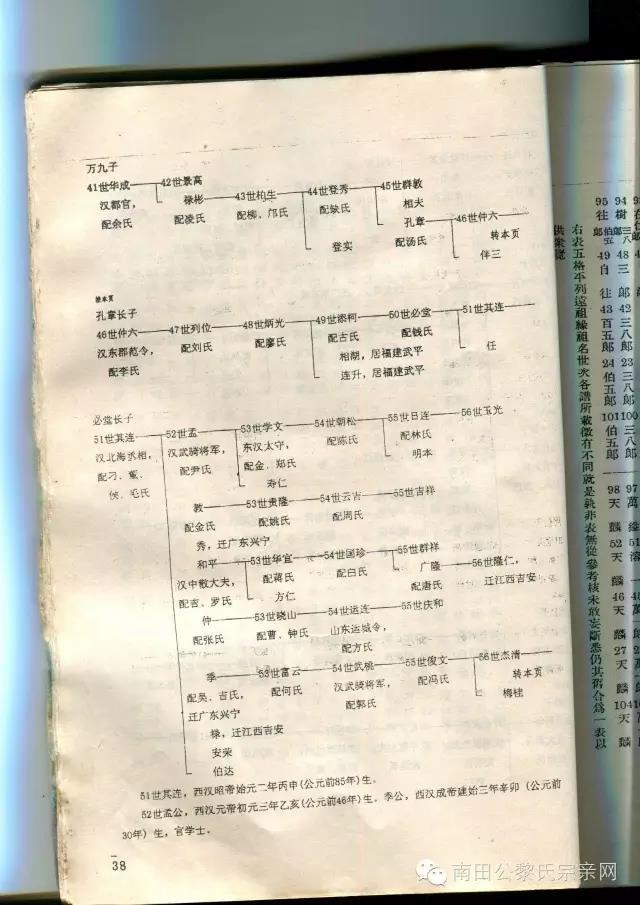 万九子
41世华成 42世景高
汉都官， 禄彬 43世柏生 44世登秀 45世群教
配余氏 配凌氏 配柳、邝氏 配缺氏 相夫
孔章 46世仲六
登实 配汤氏 转本页
伴三
接本页
孔章长子
46世仲六 47世列位 48世炳光 49世添柯 50世必堂 51世其连
汉东郡范令， 配刘氏 配廖氏 配古氏 配钱氏
配李氏 相湖，居福建武平 任
连升，居福建武平
必堂长子
51世其连 52世孟 53世学文 54世朝松 55世日连 56世玉光
汉北海丞相， 汉武骑将军， 东汉太守， 配陈氏 配林氏
配刁、董、 配尹氏 配金、郑氏 明本
侯、毛氏 寿仁
教 53世贵隆 54世云吉 55世吉祥
配金氏 配姚氏 配周氏
秀，迁广东兴宁
和平 53世华宜 54世国珍 55世群祥
汉中散大夫， 配蒋氏 配白氏 广隆 56世隆仁，
配吉、罗氏 方仁 配唐氏 迁江西吉安
仲 53世晓山 54世运连 55世庆和
配张氏 配曹、钟氏 山东运城令，
配方氏
季 53世富云 54世武桃 55世俊文 56世杰清
配吴、吉氏， 配何氏 汉武骑将军， 配冯氏 转本页
迁广东兴宁 配郭氏 梅桂
禄，迁江西吉安
安荣
伯达
51世其连，西汉昭帝始元二年丙申(公元前85年)生。
52世孟公，西汉元帝初元三年乙亥(公元前46年)生。季公，西汉成帝建始三年辛卯（公元前
30年）生，官学士。
38
右表五格平列远祖繇祖名世次各谱所载徵有不同就是孰非表無從參考核未敢妄斷悉仍其舊合爲一表以
南田公黎氏宗亲网